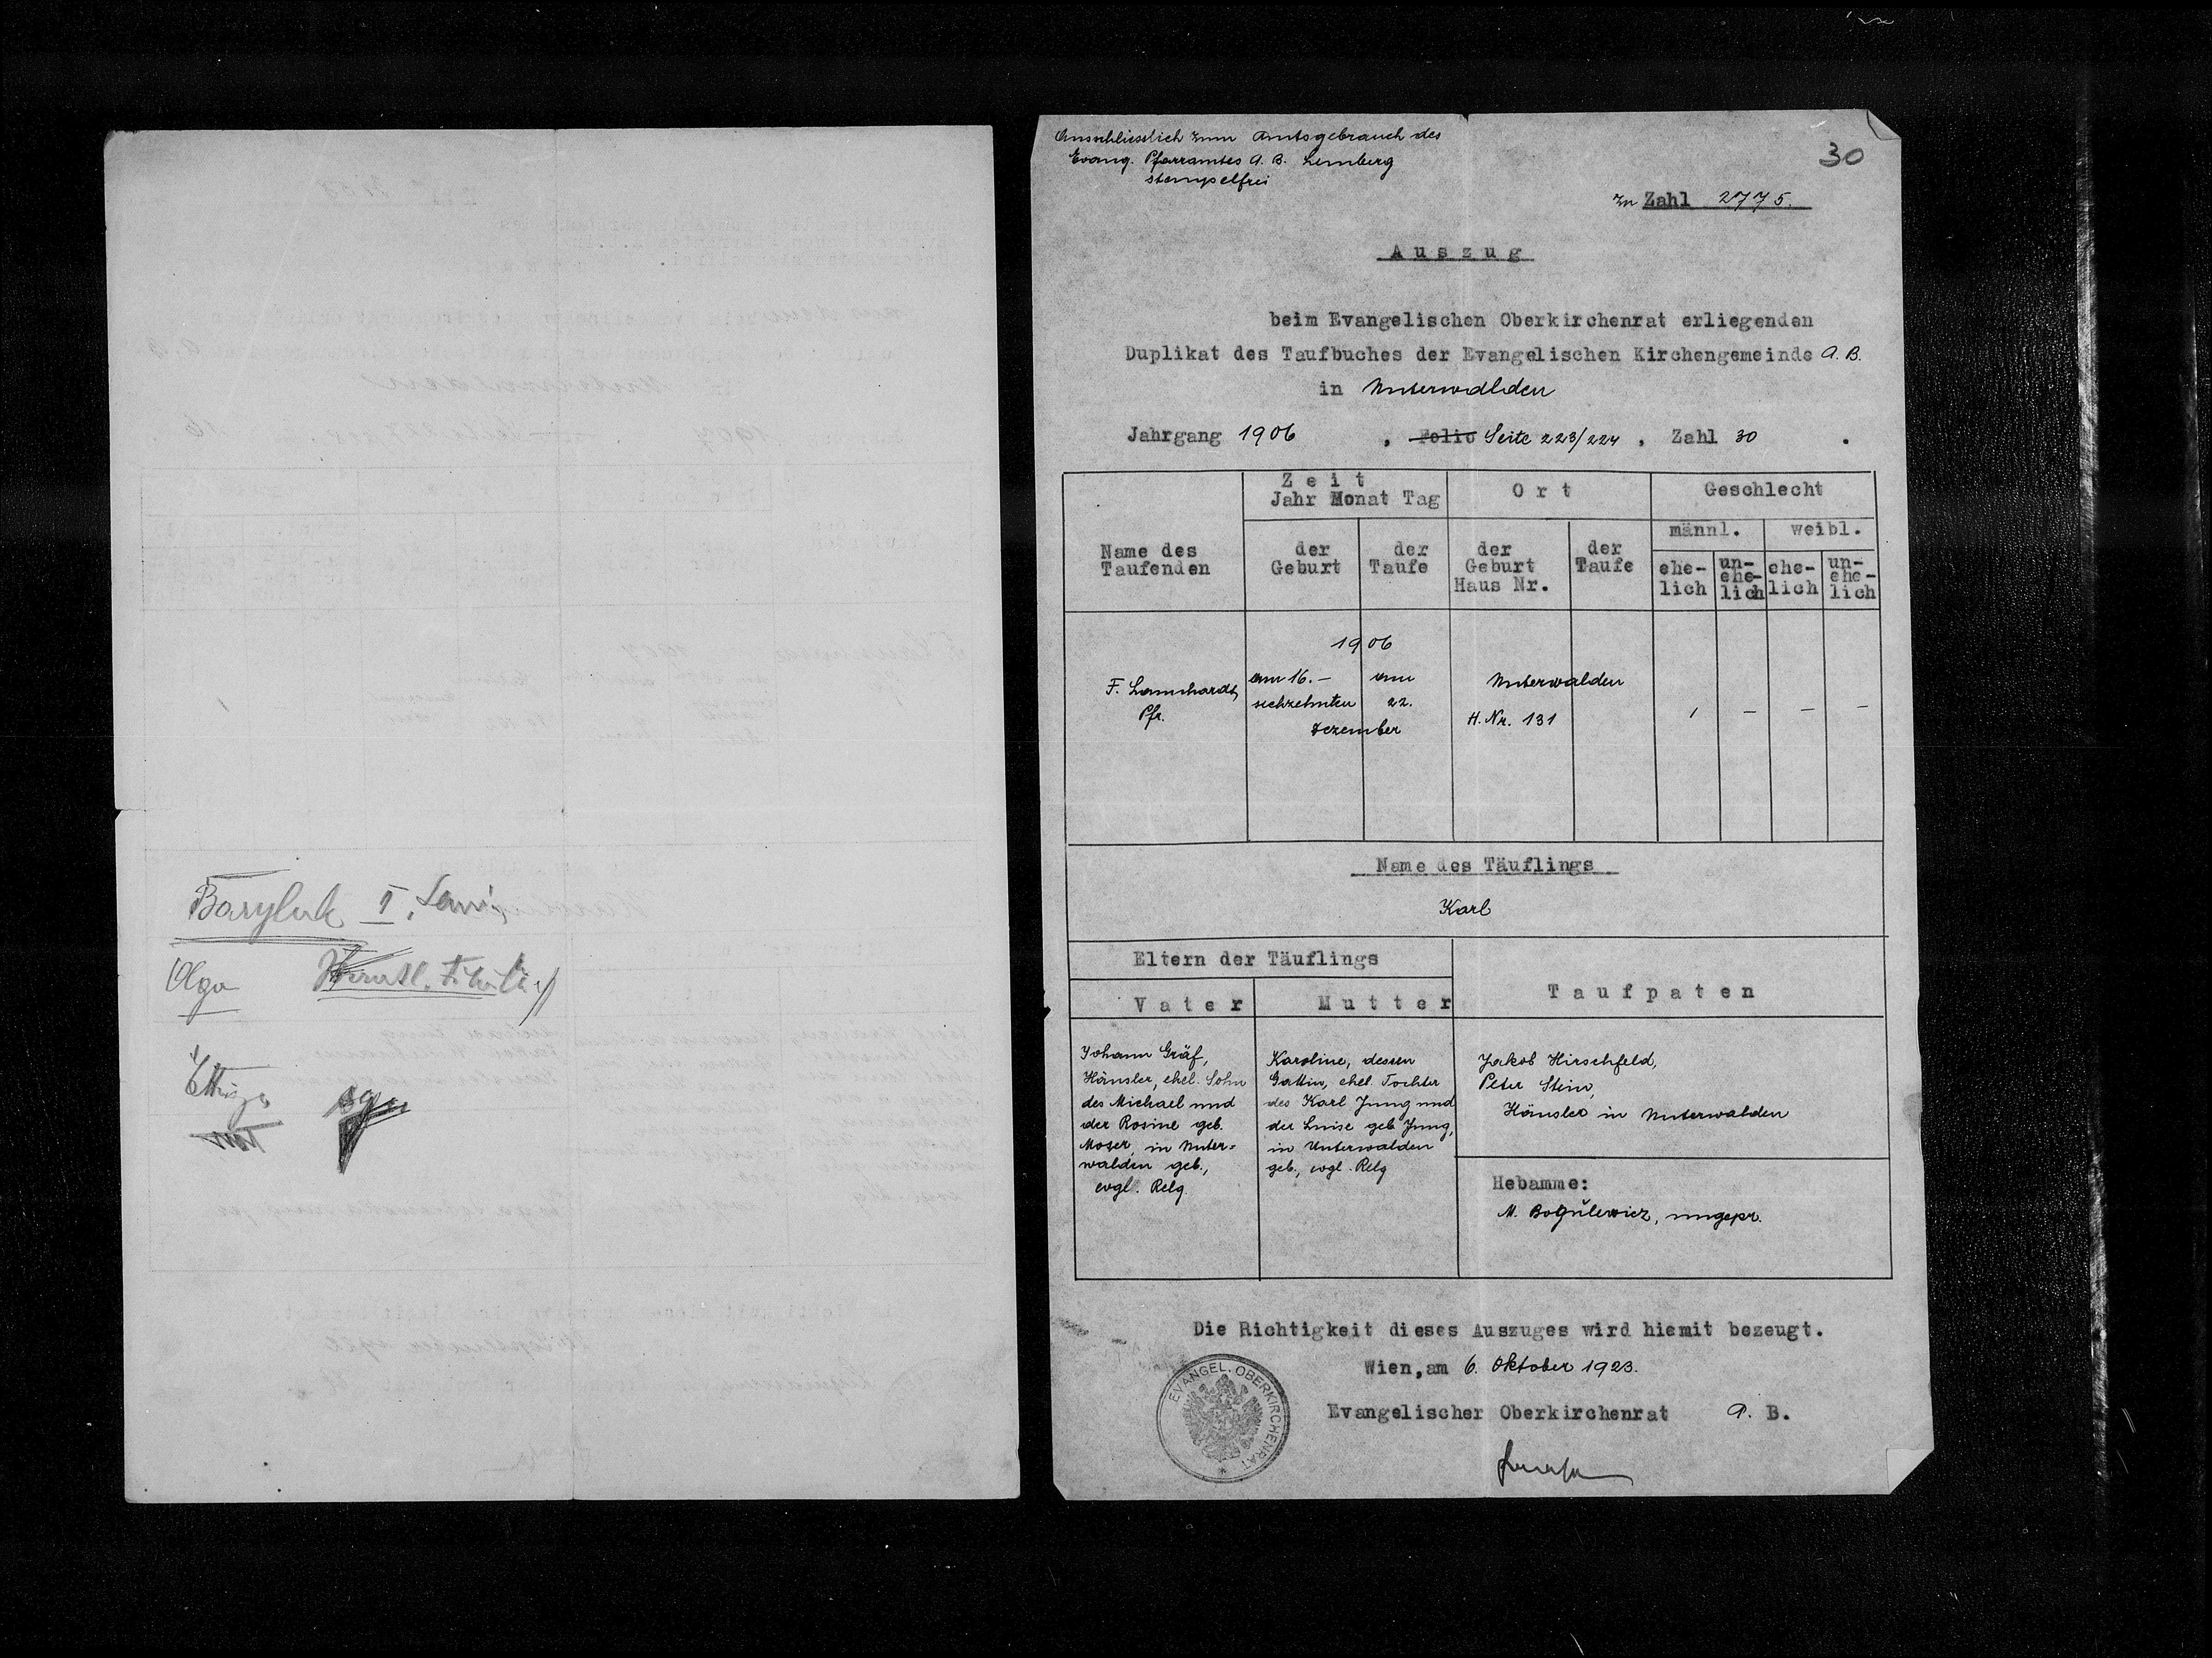 Baryluk I. 
Olga
Ausschliesslich zum Amtsgebrauch des
Evang. Pfarramtes A. B. Lemberg
stempelfrei
30
zu Zahl 2775.
Auszug
beim Evangelischen Oberkirchenrat erliegenden
Duplikat des Taufbuches der Evangelischen Kirchengemeinde A. B.
in Unterwalden
Jahrgang 1906 , Folio Seite 223/224 , Zahl 30 .
Zeit
Jahr Monat Tag
Ort
Geschlecht
männl. weibl.
Name des
Taufenden
der
Geburt
der
Taufe
der
Geburt
Haus Nr.
der
Taufe
ehe-
lich
un-
ehe-
lich
ehe-
lich
un-
ehe-
lich
1906
F. Launhardt,
Pfr.
am 16.-
sechzehnten
am
22.
Dezember
Unterwalden
H. Nr. 131
1 – – –
Name des Täuflings
Karl
Eltern der Täuflings
Vater Mutter
Taufpaten
Johann Gräf,
Häusler, ehel. Sohn
des Michael und
der Rosine geb.
Moser in Unter=
walden geb.,
evgl. Relg.
Karoline, dessen
Gattin, ehel. Tochter
des Karl Jung und
der Luise geb Jung,
in Unterwalden
geb., evgl. Relg
Jakob Hirschfeld,
Peter Stein,
Häusler in Unterwalden
Hebamme:
M. Bogulewicz, ungepr.
Die Richtigkeit dieses Auszuges wird hiemit bezeugt.
Wien, am 6. Oktober 1923.
Evangelischer Oberkirchenrat A. B.
EVANGEL. OBERKIRCHENRAT